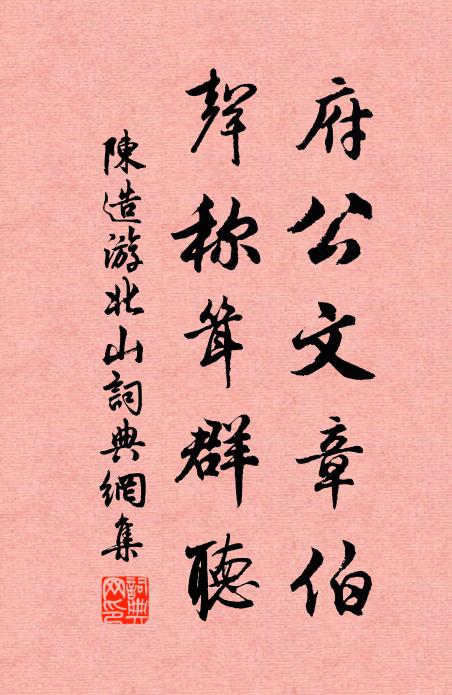 府公文章伯
聲称耸群聽
陳造游北山詞典網集
詞典網印